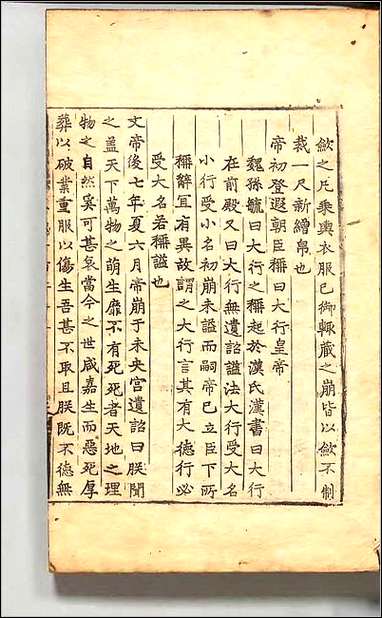 斂之凡乘輿衣服已御輒藏之崩皆以斂不制
裁一尺新繒帛也
帝初登遐朝臣稱曰大行皇帝
魏孫毓曰大行之稱起於漢氏漢書曰大行
在前殿又曰大行無遺詔謚法大行受大名
小行受小名初崩未謚而嗣帝已立臣下所
稱辭宜有異故謂之大行言其有大德行必
受大名若稱謚也
文帝後七年夏六月帝崩于未央宫遺詔曰朕聞
之盖天下萬物之萌生靡不有死死者天地之理
物之自然奚可甚哀當今之世咸嘉生而惡死厚
葬以破業重服以傷生吾甚不取且朕既不德無